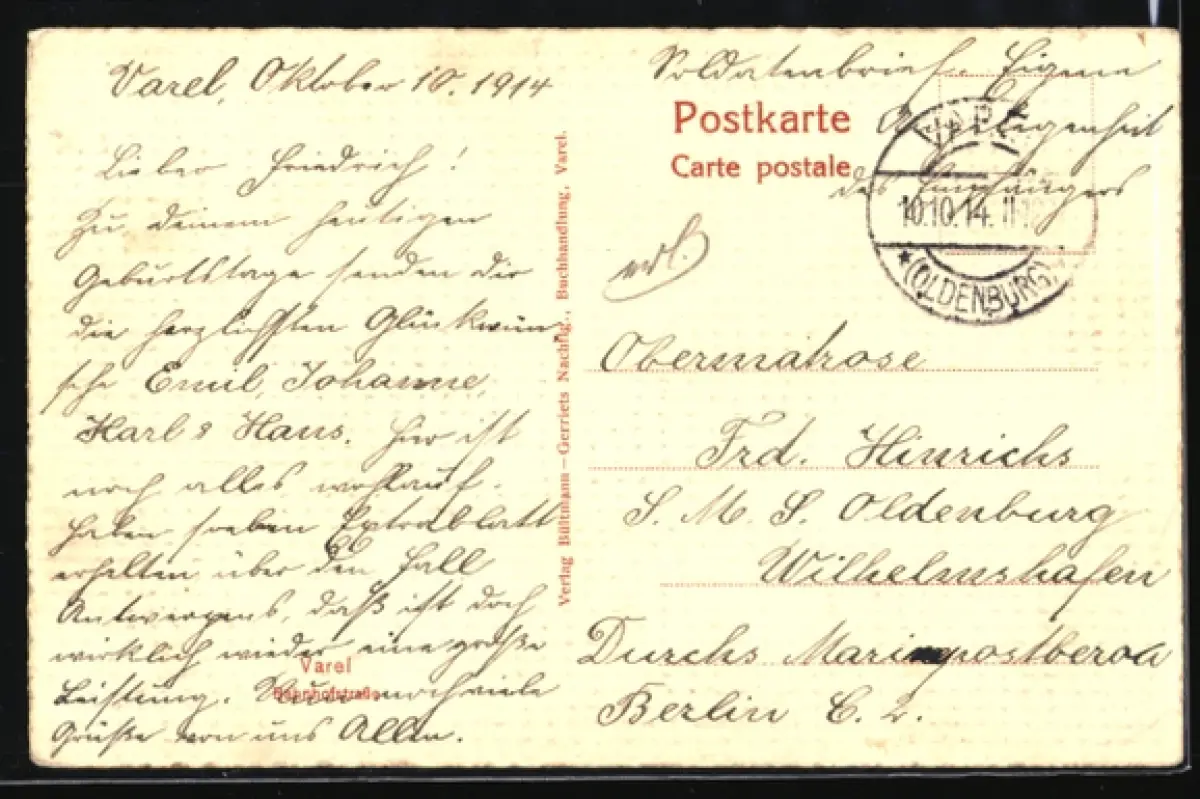 Varel, Oktober 10. 1914
Lieber Friedrich!
Zu deinem heutigen
Geburtstage senden dir
die herzlichsten Glückwün-
sche Emil, Johanne,
Karl & Hans. Hier ist
noch alles wohlauf.
Haben soeben Extrablatt
erhalten über den Fall
Antwerpens, daß ist doch
wirklich wieder eine große
Leistung. Nun noch viele
Grüße von uns Allen.
Varel
Bahnhofstraße
Verlag Bültmann-Gerriets Nachflg., Buchhandlung, Varel.
Soldatenbrief. Eigene
Angelegenheit
des Empfängers
Postkarte
Carte postale
VAREL
10.10.14. 11-12
* (OLDENBURG)
Obermatrose
Frd. Hinrichs
S. M. S. Oldenburg
Wilhelmshafen
Durchs Marinepostberoa
Berlin C. 2.